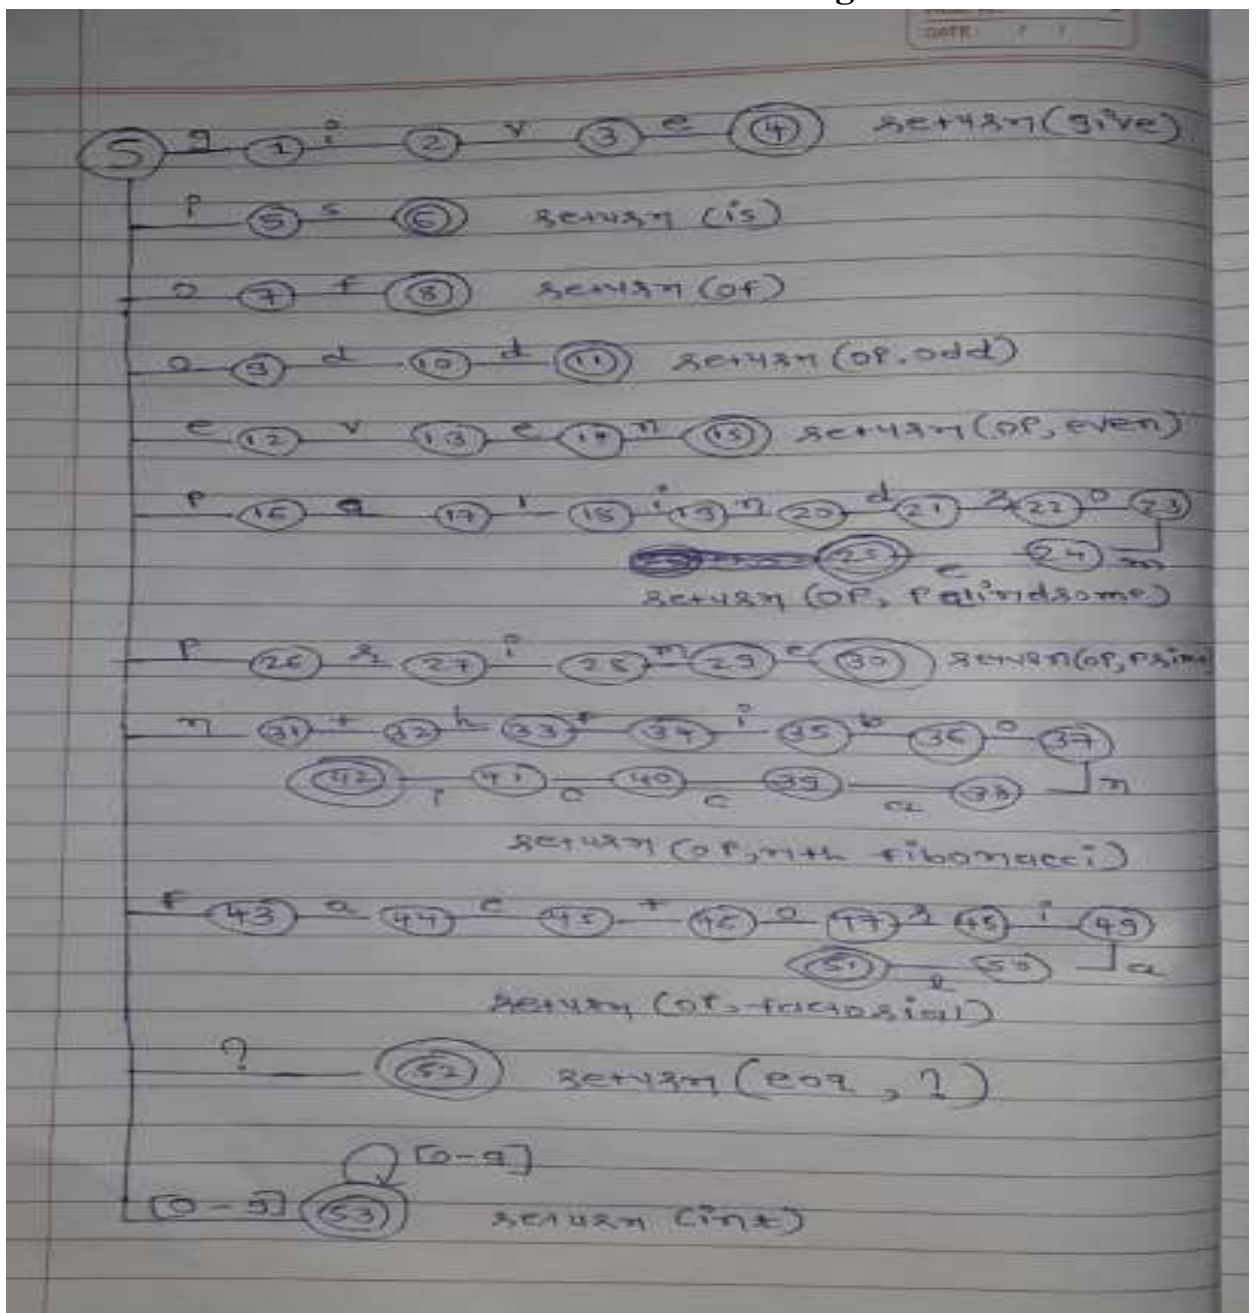 DATE / /
S g 1 i 2 v 3 e 4 return(give)
i 5 s 6 return (is)
o 7 f 8 return (of)
o 9 d 10 d 11 return (OP, odd)
e 12 v 13 e 14 n 15 return (OP, even)
P 16 a 17 l 18 i 19 n 20 d 21 r 22 o 23
25 e 24 m
return (OP, Palindrome)
P 26 r 27 i 28 m 29 e 30 return(OP, Prime)
n 31 t 32 h 33 f 34 i 35 b 36 o 37
42 i 41 c 40 c 39 a 38 n
return (OP, nth fibonacci)
f 43 a 44 c 45 t 46 o 47 r 48 i 49
51 l 50 a
return (OP, factorial)
? 52 return (eoq, ?)
[0-9]
[0-9] 53 return (int)